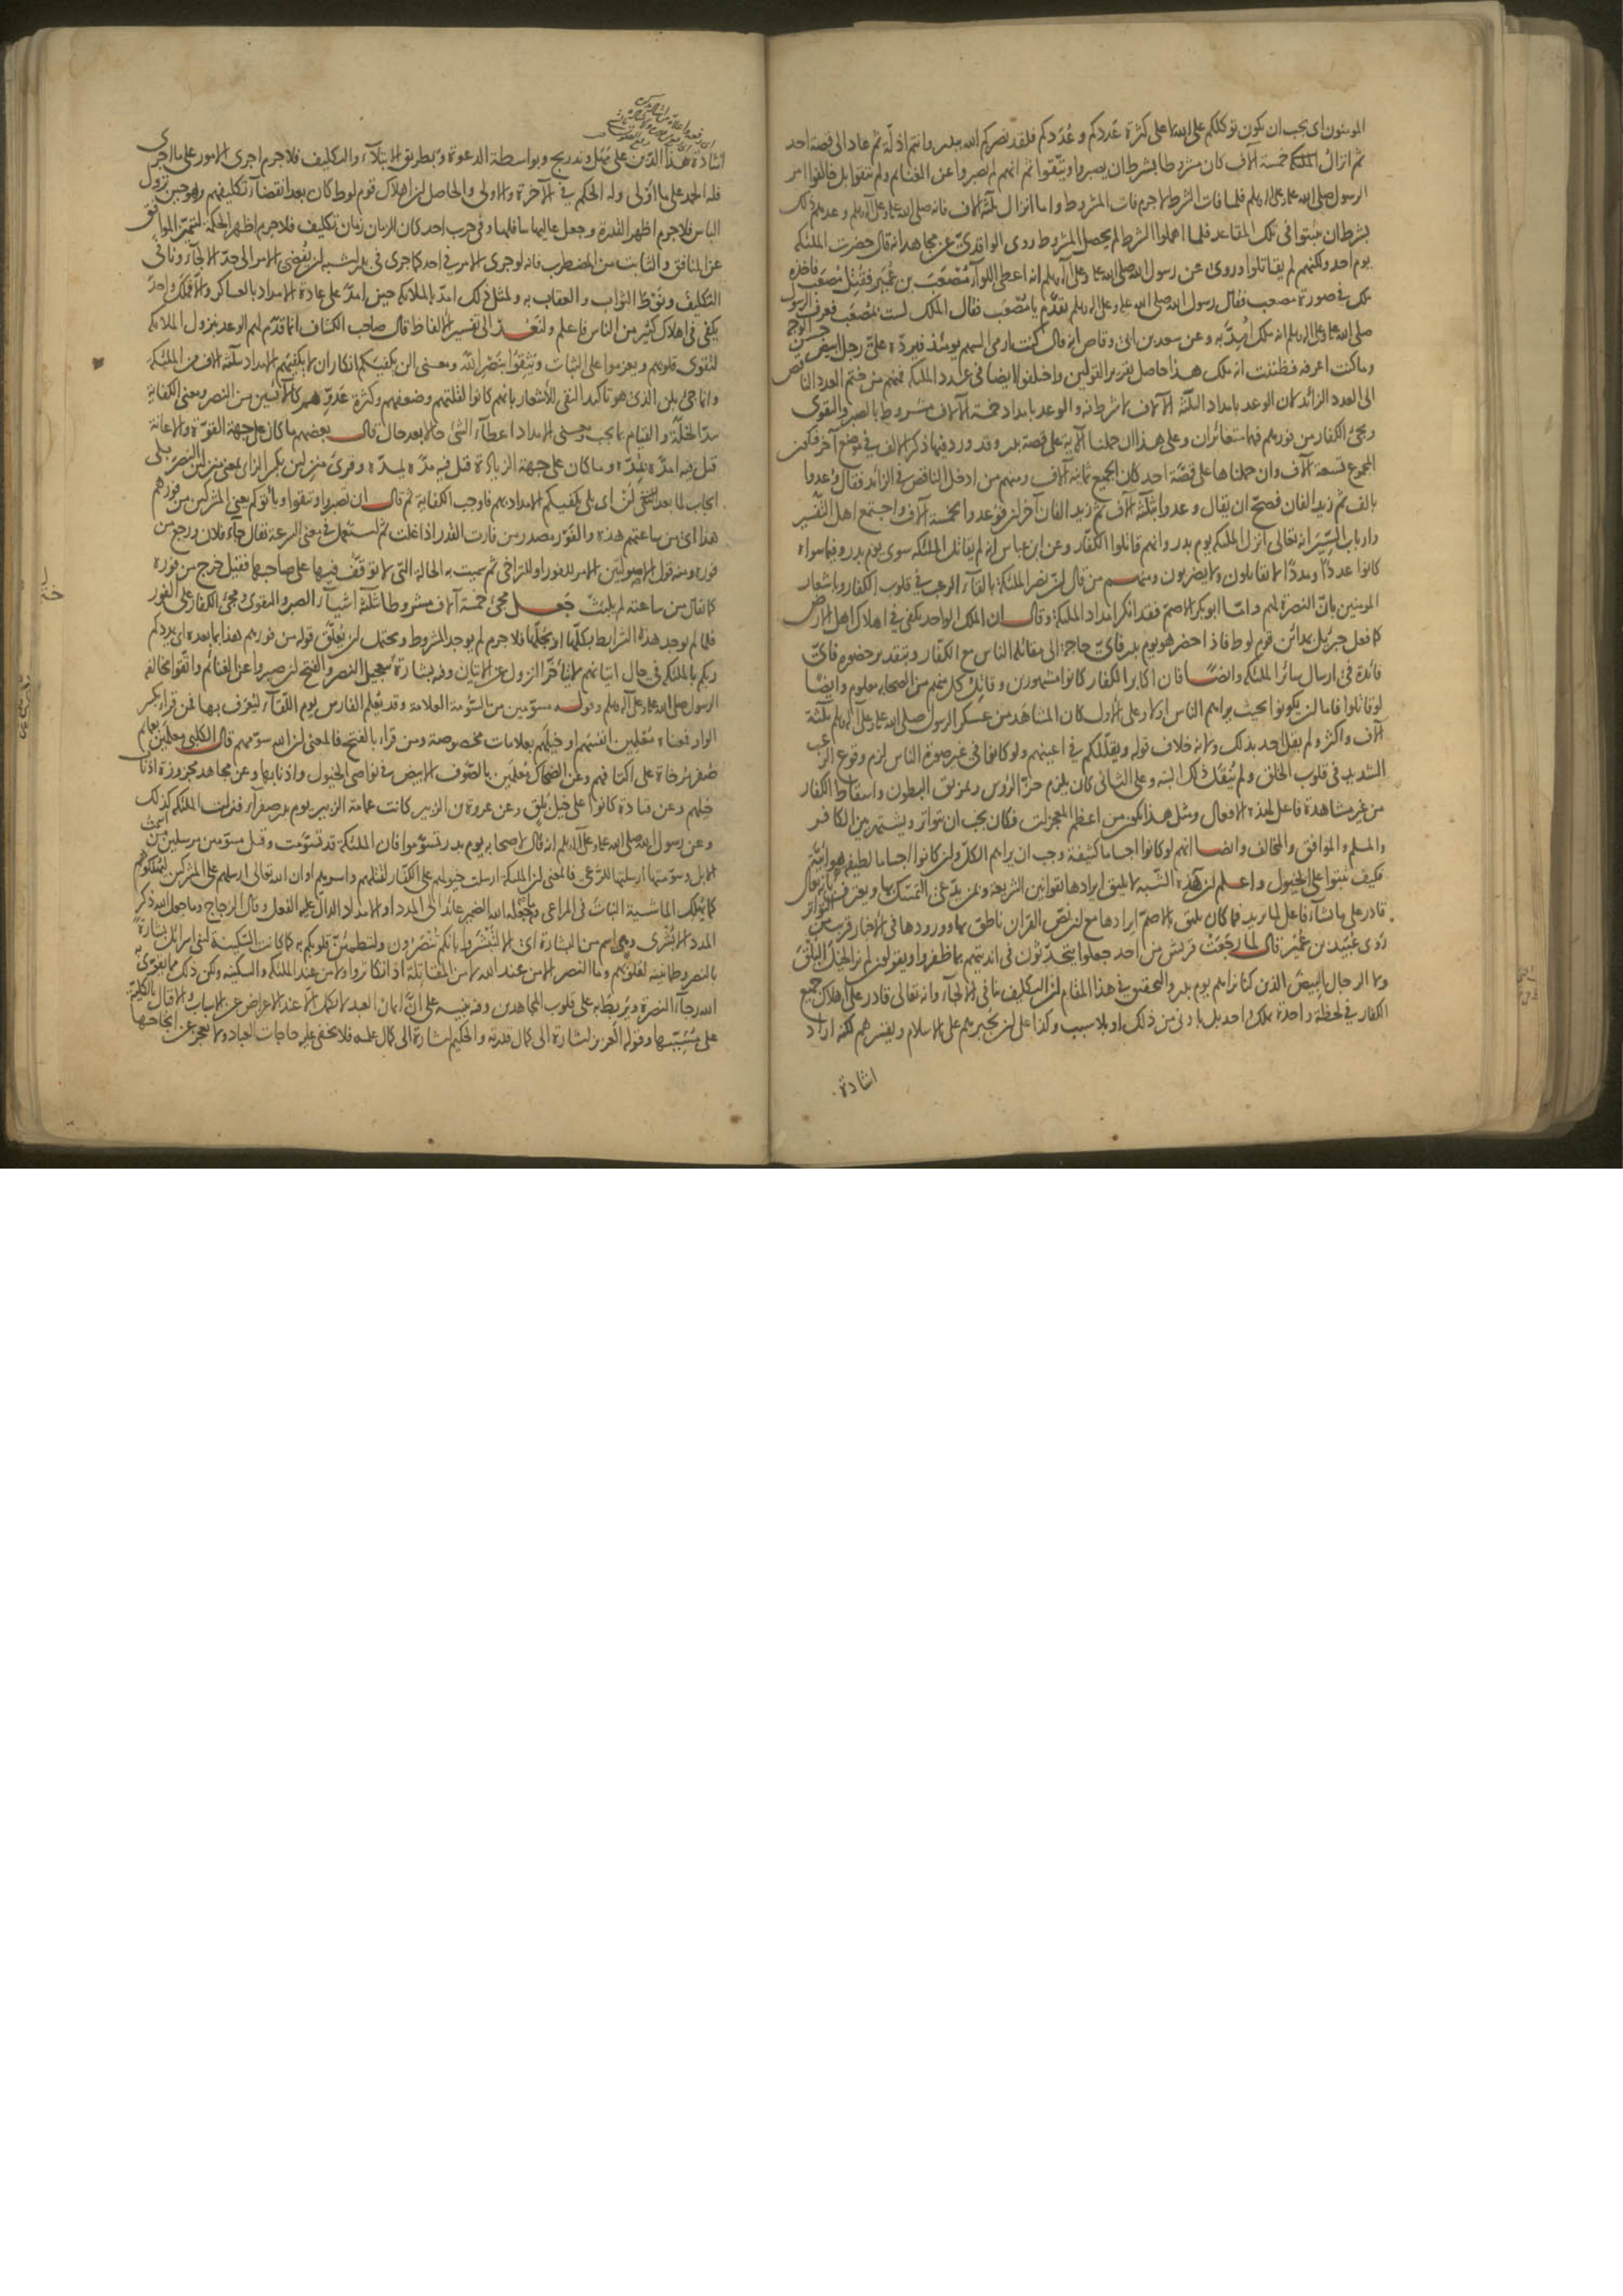 المؤمنون اى يجب ان يكون توكلكم على الله لا على كثرة عَددكم و عُدَدكم فلقد نصركم الله ببدر وانتم اذلة ثم عاد الى قصة احد
ثم انزال الملئكة خمسة آلاف كان مشروطا بشرط ان يصبروا ويتّقوا ثم انهم لم يصبروا عن الغنائم ولم يتقوا بل خالفوا امر
الرسول صلى الله عليه وعلى آله وسلم فلما فات الشرط لا جرم فات المشروط واما انزال ثلثة آلاف فانه صلى الله عليه وعلى آله وسلم وعدهم ذلك
بشرط ان يثبتوا فى تلك المقاعد فلما اهملوا الشرط لم يحصل المشروط روى الواقدىّ عن مجاهد انه قال حضرت الملئكة
يوم احد ولكنهم لم يقاتلوا وروى عن رسول الله صلى الله عليه وعلى آله وسلم انه اعطى اللوآء مُصْعَبَ بن عُمَير فقُتِل مصعب فاخذه
ملك فى صورة مصعب فقال رسول الله صلى الله عليه وعلى آله وسلم تقدّم يا مُصْعَب فقال الملك لست بمُصعَب فعرف الرسول
صلى الله عليه وعلى آله وسلم انه ملك اُمِدّ به وعن سعد بن ابى وقاص انه قال كنت ارمى السهم يومئذ فيردّه علىّ رجل ابيض حسن الوجه
وما كنت اعرفه فظننت انه ملك هذا حاصل تقرير القولين واختلفوا ايضا فى عدد الملئكة فمنهم من ضم العدد الناقص
الى العدد الزائد لان الوعد بامداد الثلثة الآلاف لا شرط فيه والوعد بامداد خمسة الآلاف مشروط بالصبر والتقوى
ومجئ الكفار من فورهم فهما متغائران وعلى هذا ان حملنا الآية على قصة بدر وقد ورد فيها ذكر الالف فى موضع آخر فيكون
المجموع تسعة آلاف وان حملناها على قصّة احد كان الجميع ثمانية آلاف ومنهم من ادخل الناقص فى الزائد فقال وُعدوا
بالف ثم زيد الفان فصحّ ان يقال وعدوا بثلثة آلاف ثم زيد الفان آخران فوعدوا بخمسة آلاف واجتمع اهل التفسير
وارباب السِّيَر انه تعالى انزل الملئكة يوم بدر وانهم قاتلوا الكفّار وعن ابن عباس انه لم يقاتل الملئكة سوى يوم بدر وفيما سواه
كانوا عددًا ومددًا لا يقاتلون ولا يضربون ومنهم من قال ان نصر الملئكة بالقآء الرعب فى قلوب الكفار وباشعار
المومنين بانّ النصرة لهم وامّا ابو بكر الاصمّ فقد انكر امداد الملئكة وقال ان الملك الواحد يكفى فى اهلاك اهل الارض
كما فعل جبرئيل بمدائن قوم لوط فاذا حضر هو يوم بدر فاىّ حاجة الى مقاتلة الناس مع الكفّار وبتقدير حضوره فاىّ
فائدة فى ارسال سائر الملئكة وايضًا فان اكابر الكفار كانوا مشهورين وقاتل كل منهم من الصحابة معلوم وايضًا
لو قاتلوا فاما ان يكونوا بحيث يراهم الناس او لا وعلى الاول كان المشاهَد من عسكر الرسول صلى الله عليه وعلى آله وسلم ثلثة
آلاف واكثر ولم يقل احد بذلك ولانه خلاف قوله ويقللكم فى اعينهم ولو كانوا فى غير صورة الناس لزم وقوع الرعب
الشديد فى قلوب الخلق ولم يُنقل ذلك البتة وعلى الثانى كان يلزم حزّ الرؤس وتمزيق البطون واسقاط الكفار
من غير مشاهدة فاعل لهذه الافعال ومثل هذا يكون من اعظم المعجزات فكان يجب ان يتواتر ويشتهر بين الكافر
والمسلم والموافق والمخالف وايضا انهم لو كانوا اجساما كثيفة وجب ان يراهم الكلّ وان كانوا اجساما لطيفة هوائيّة
فكيف ثبتوا على الخيول واعلم ان هذه الشبه لا يليق ايرادها بقوانين الشريعة وبمن يدّعى التمسك بها ويعترف بانه تعالى
قادر على ما يشآء فاعل لما يريد فما كان يليق بالاصمّ ايرادها مع ان نصّ القران ناطق بها وورودها فى الاخبار قريب من التواتر
رُوِى عُبَيد بن عُمَيْر قال لما رجعَتْ قريش من احد جعلوا يتحدّثون فى انديتهم بما ظفروا ويقولون لم نر الخيل البُلْقَ
ولا الرجال البيض الذين كنا نراهم يوم بدر والتحقيق فى هذا المقام ان التكليف ينافى الالجاء وانه تعالى قادر على اهلاك جميع
الكفار فى لحظة واحدة بملك واحد بل بادنى من ذلك او بلا سبب وكذا على ان يُجبرهم على الاسلام ويقسرهم لكنه اراد
اشادة
اشادة هذا الدين على مَهَل وتدريج وبواسطة الدعوة وبطريق الابتلآء والتكليف فلا جرم اجرى الامور على ما اجرى
فله الحمد على ما اَوْلى وله الحكم فى الآخرة والاولى والحاصل ان اهلاك قوم لوط كان بعد انقضآء تكليفهم وهو حين نزول
الباس فلا جرم اظهر القدرة وجعل عاليها سافلها وفى حرب احد كان الزمان زمان تكليف فلا جرم اظهر الحكمة ليتميّز الموافق
عن المنافق والثابت من المضطرب فانه لو جرى الامر فى احد كما جرى فى بدر اشبه ان يُفضى الامر الى حدّ الالجآء ونافى
التكليفَ ونَوْطَ الثواب والعقاب به ولمثل ذلك امدّ بالملائكة حين امدّ على عادة الامداد بالعساكر والّا فملك واحد
يكفى فى اهلاك كثير من الناس فاعلم ولنَعُد الى تفسير الالفاظ قال صاحب الكشاف انما قدّم لهم الوعد بنزول الملائكة
لتقوى قلوبهم ويعزموا على الثبات ويَثِقوا بنَصْر اللهِ ومعنى الن يكفيكم انكار ان لا يكفيهم الامداد بثلثة آلاف من الملئكة
وانما جئ بلن الذى هو تاكيد النفى للاشعار بانهم كانوا لقلّتهم وضعفهم وكثرة عَدوّهم كالآئسين من النصر ومعنى الكفاية
سدّ الخلّة والقيام بما يجب ومعنى الامداد اعطآء الشئ حالا بعد حال قال بعضهم ما كان على جهة القوّة والاعانة
قيل فيه امدّه يُمِدّه وما كان على جهة الزيادة قيل فيه مدّه يمدّه وقرئ منزلين بكسر الزاى بمعنى منزلين النصر بلى
ايجاب لما بعد لن اى بلى يكفيكم الامداد بهم فاوجب الكفاية ثم قال ان تصبروا وتتقوا وياتوكم يعنى المشركين من فورهم
هذا اى من ساعتهم هذه والفَوْر مصدر من فارت القدر اذا غلت ثم استعمل فى معنى السرعة يقال جآء فلان ورجع من
فوره ومنه قول الاصوليين الامر للفور او للتراخى ثم سميت به الحالة التى لا توقّف فيها على صاحبها فقيل خرج من فوره
كما يقال من ساعته لم يلبث جعل مجئ خمسة آلاف مشروطا بثلثة اشيآء الصبر والتقوى ومجئ الكفار على الفور
فلما لم يوجد هذه الشرائط بكلّها او بجُلّها فلا جرم لم يوجد المشروط ويحتمل ان يُعلّق قوله من فورهم هذا بما بعده اى يمددكم
ربكم بالملئكة فى حال اتيانهم لا يتأخّر النزول عن الاتيان وفيه بشارة بتعجيل النصر والفتح ان صبروا عن الغنائم واتقوا مخالفة
الرسول صلى الله عليه وعلى آله وسلم وقوله مسوّمين من السُّومة العلامة وقد يُعلم الفارس يوم اللقآء ليُعرف بها فمن قراء بكسر
الواو فمعناه مُعْلِمين انفسَهم او خيلهم بعلامات مخصوصة ومن قراء بالفتح فالمعنى ان الله سوّمهم قال الكلبى معلَمين بعمائم
صُفر مُرخاة على اكتافهم وعن الضحاك مُعلَمين بالصّوف الابيض فى نواصى الخيول واذنابها وعن مجاهد مجزوزة اذناب
خيلهم وعن قتادة كانوا على خيل بُلْقٍ وعن عروة بن الزبير كانت عمامة الزبير يوم بدر صفرآء فنزلت الملئكة كذلك
وعن رسول الله صلى الله عليه وعلى آله وسلم انه قال لاصحابه يوم بدر تسوّموا فان الملئكة قد تسوّمت وقيل مسوّمين مرسلين من اسَمْتُ
الابل وسوّمتها ارسلتها للرَّعى فالمعنى ان الملئكة ارسلت خيولهم على الكفار لقتلهم واسرهم او ان الله تعالى ارسلهم على المشركين ليهلكوهم
كما يُهلك الماشية النباتَ فى المراعى وما جعله الله الضمير عائد الى المدد او الامداد الدالّ عليه الفعل وقال الزجاج وما جعل الله ذكر
المدد الا بُشرى وهى اسم من البشارة اى الا لتُبَشَّروا بانكم تُنصَرون ولتطمئنّ قلوبكم به كما كانت السّكينة لبنى اسرائيل بشارةً
بالنصر وطمانينة لقلوبهم وما النصر الا من عند الله لا من المقاتلة اذا تكاثروا ولا من عند الملئكة والسكينة ولكن ذلك مما يقوّى به
الله رجآءَ النصرة ويُربَطُ به على قلوب المجاهدين وفيه تنبيه على انّ ايمان العبد لا يكمل الا عند الاعراض عن الاسباب والاقبال بالكليّة
على مُسَبِّبها وقوله العزيز اشارة الى كمال قدرته والحكيم اشارة الى كمال علمه فلا يخفى عليه حاجات العباد ولا يعجز عن انجاحها